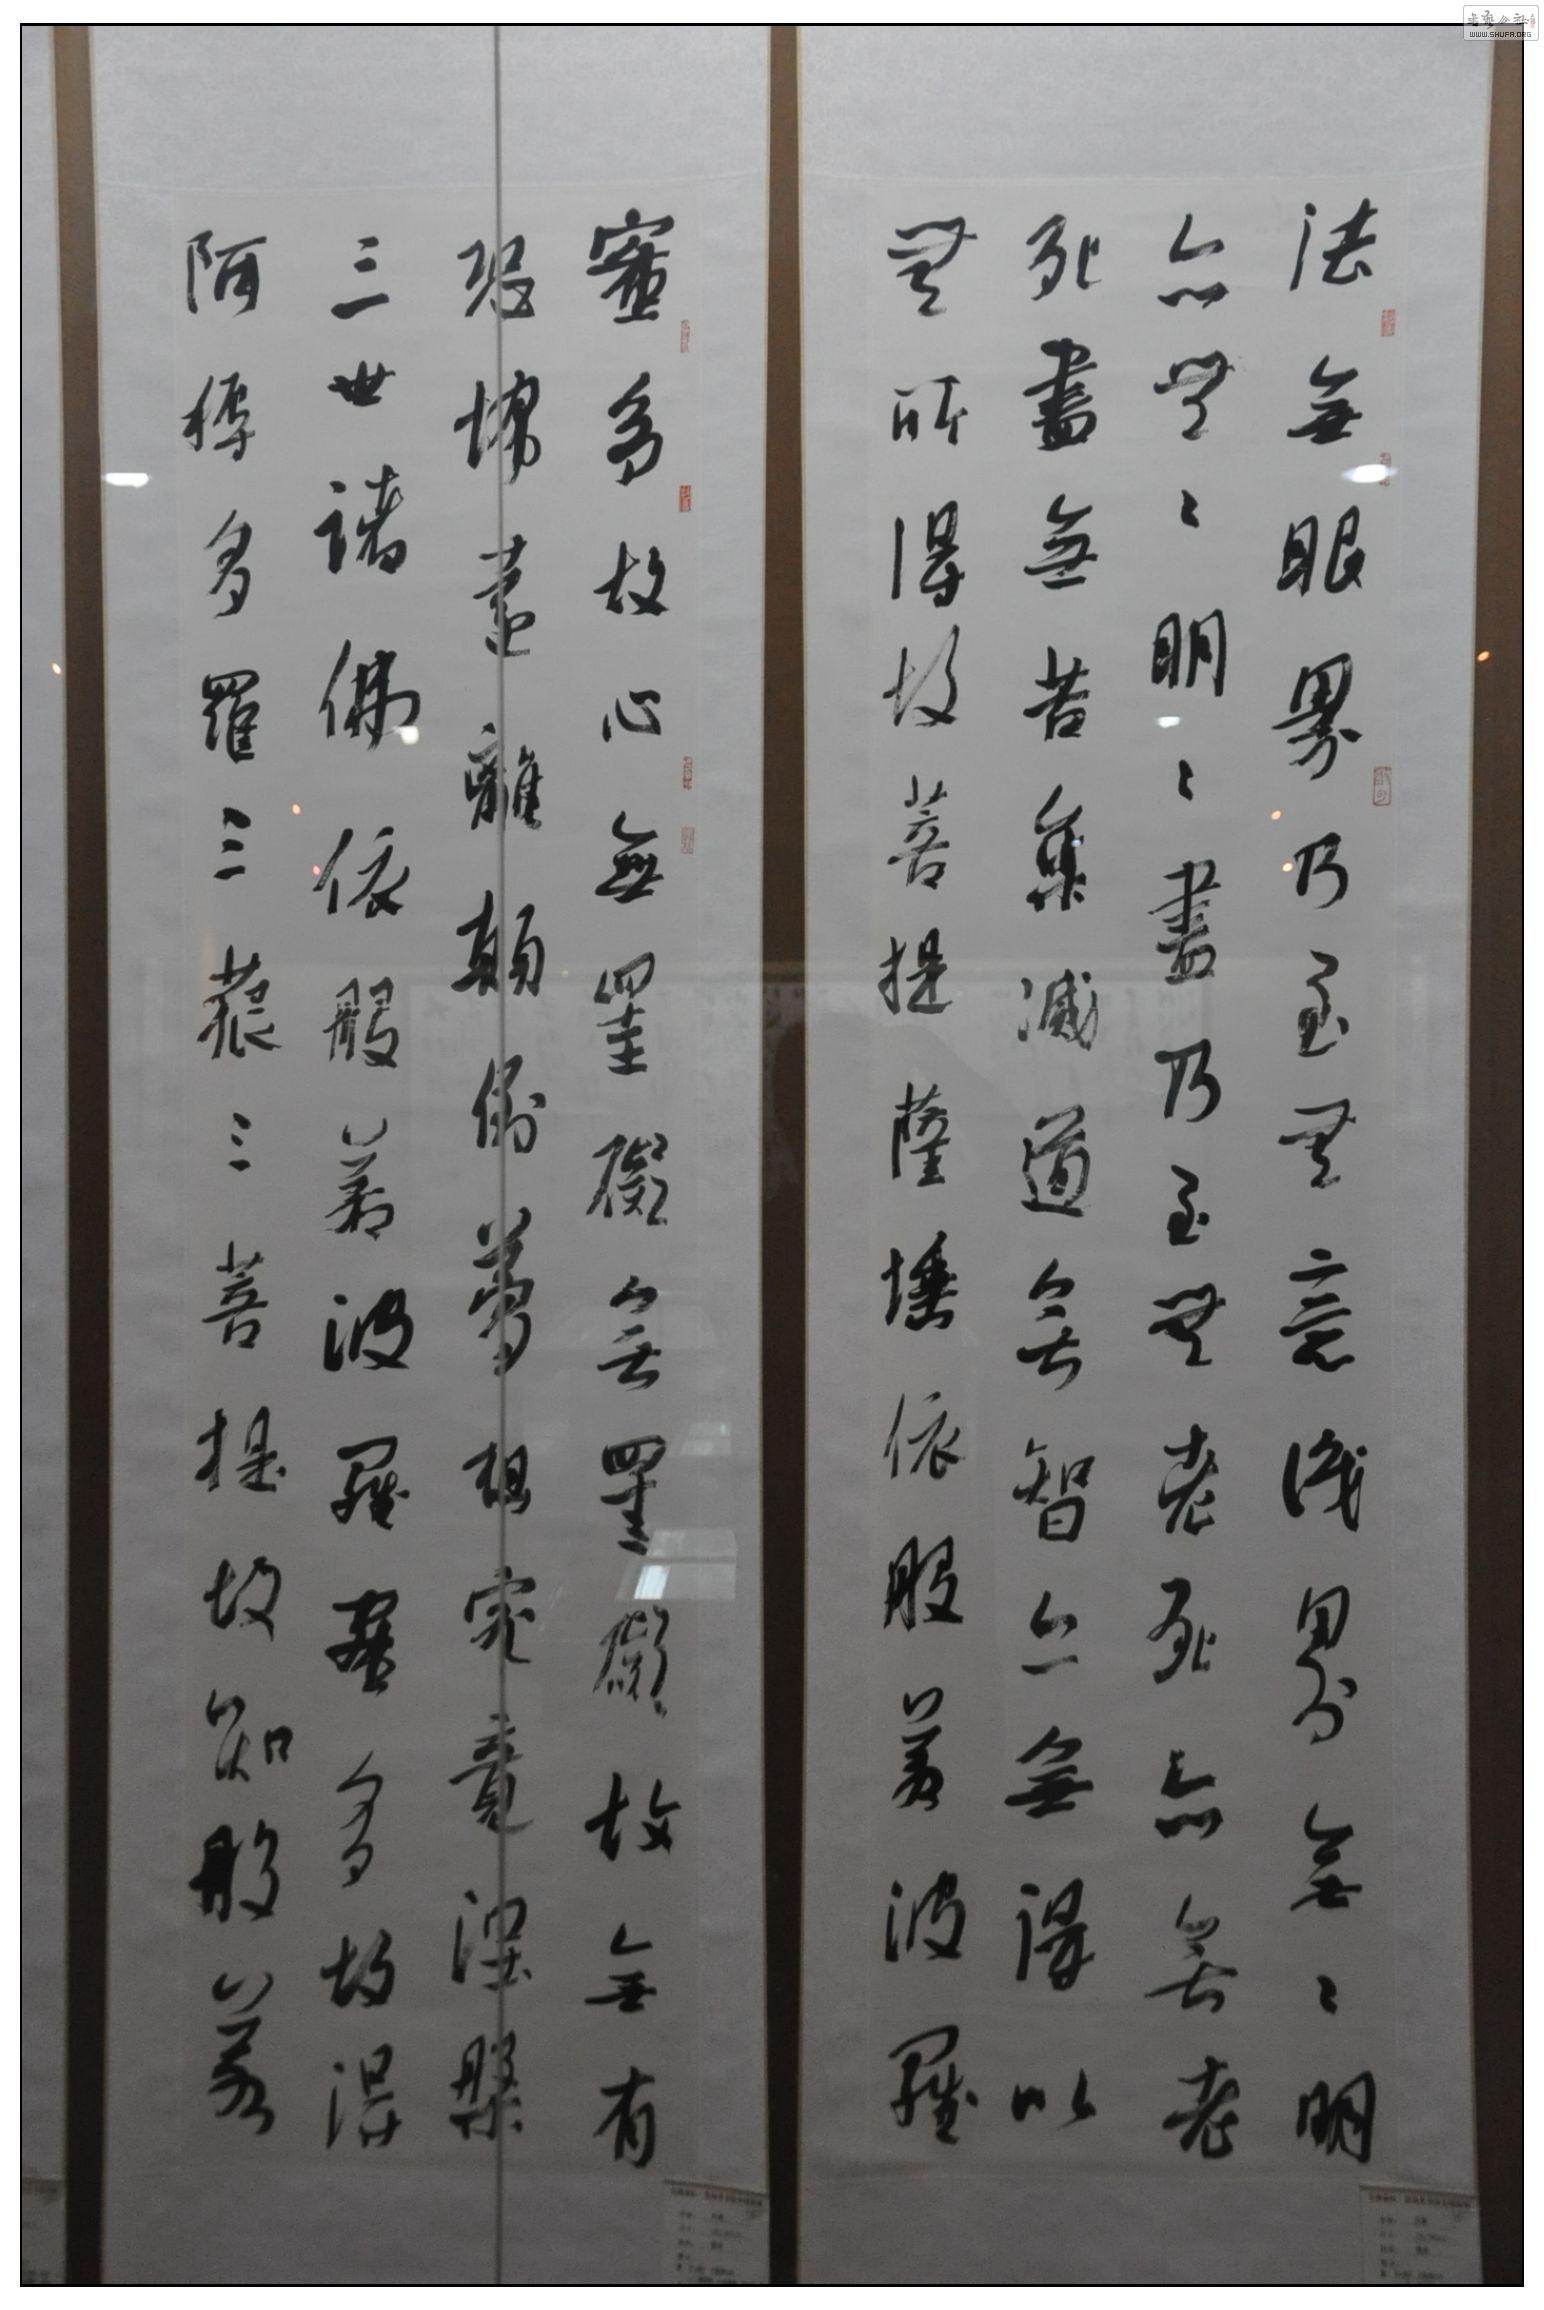 法無眼界乃至無意識界無〻明
亦無〻明〻盡乃至無老死亦無老
死盡無苦集滅道無智亦無得以
無所得故菩提薩埵依般若波羅
蜜多故心無罣礙無罣礙故無有
恐怖遠離顛倒夢想究竟涅槃
三世諸佛依般若波羅蜜多故得
阿耨多羅三藐三菩提故知般若
WWW.SHUFA.ORG